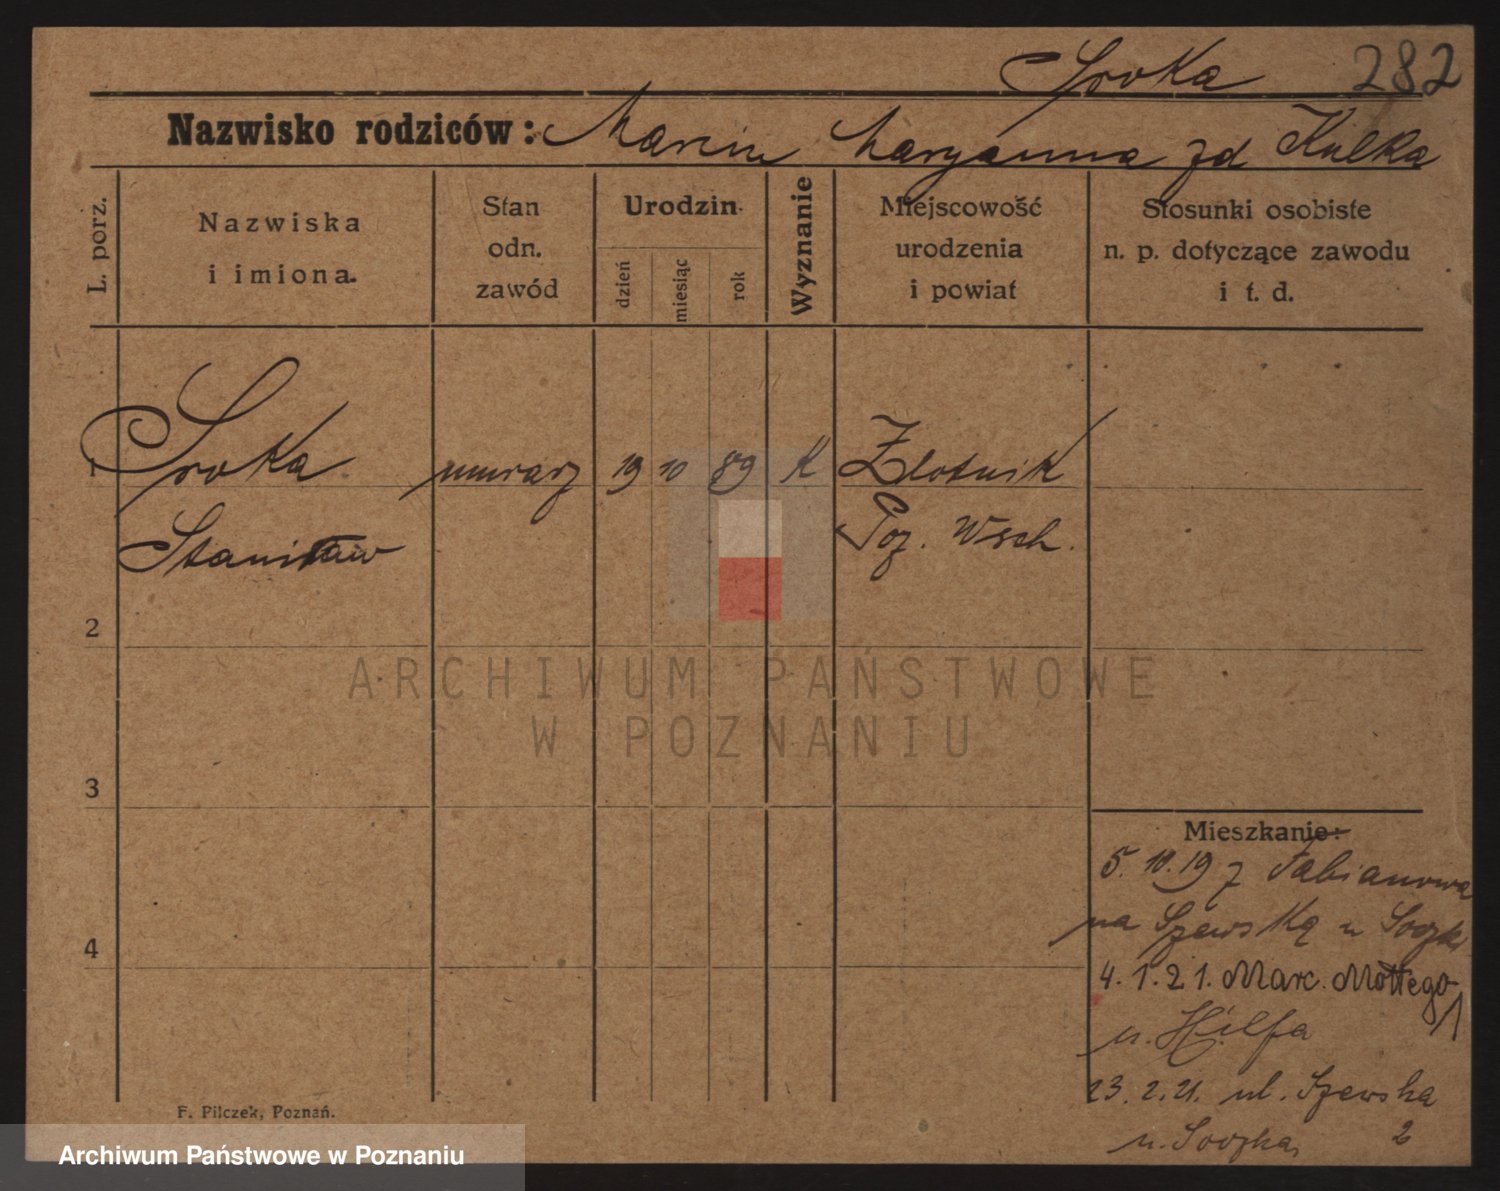 Sroka 282
Nazwisko rodziców: Marcin Maryanna zd Kulka
L. porz.
Nazwiska
i imiona.
Stan
odn.
zawód
Urodzin.
dzień
miesiąc
rok
Wyznanie
Miejscowość
urodzenia
i powiat
Stosunki osobiste
n. p. dotyczące zawodu
i t. d.
1 Sroka murarz 19 10 89 K Złotnik
Stanisław Poz. Wsch.
2
ARCHIWUM PAŃSTWOWE
W POZNANIU
3
Mieszkanie:
5. 10. 19 z Fabianowa
na Szewską u
4
4. 1. 21. Marc. Mottego
1
u. Hilfa
23. 2. 21. ul. Szewska
2
F. Pilczek, Poznań.
Archiwum Państwowe w Poznaniu